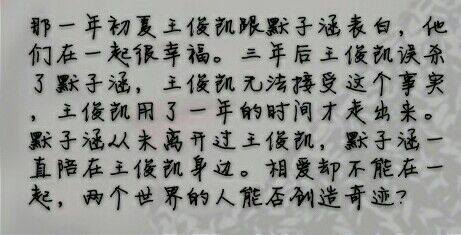 那一年初夏王俊凯跟默子涵表白，他
们在一起很幸福。三年后王俊凯误杀
了默子涵，王俊凯无法接受这个事实
，王俊凯用了一年的时间才走出来。
默子涵从未离开过王俊凯，默子涵一
直陪在王俊凯身边。相爱却不能在一
起，两个世界的人能否创造奇迹？